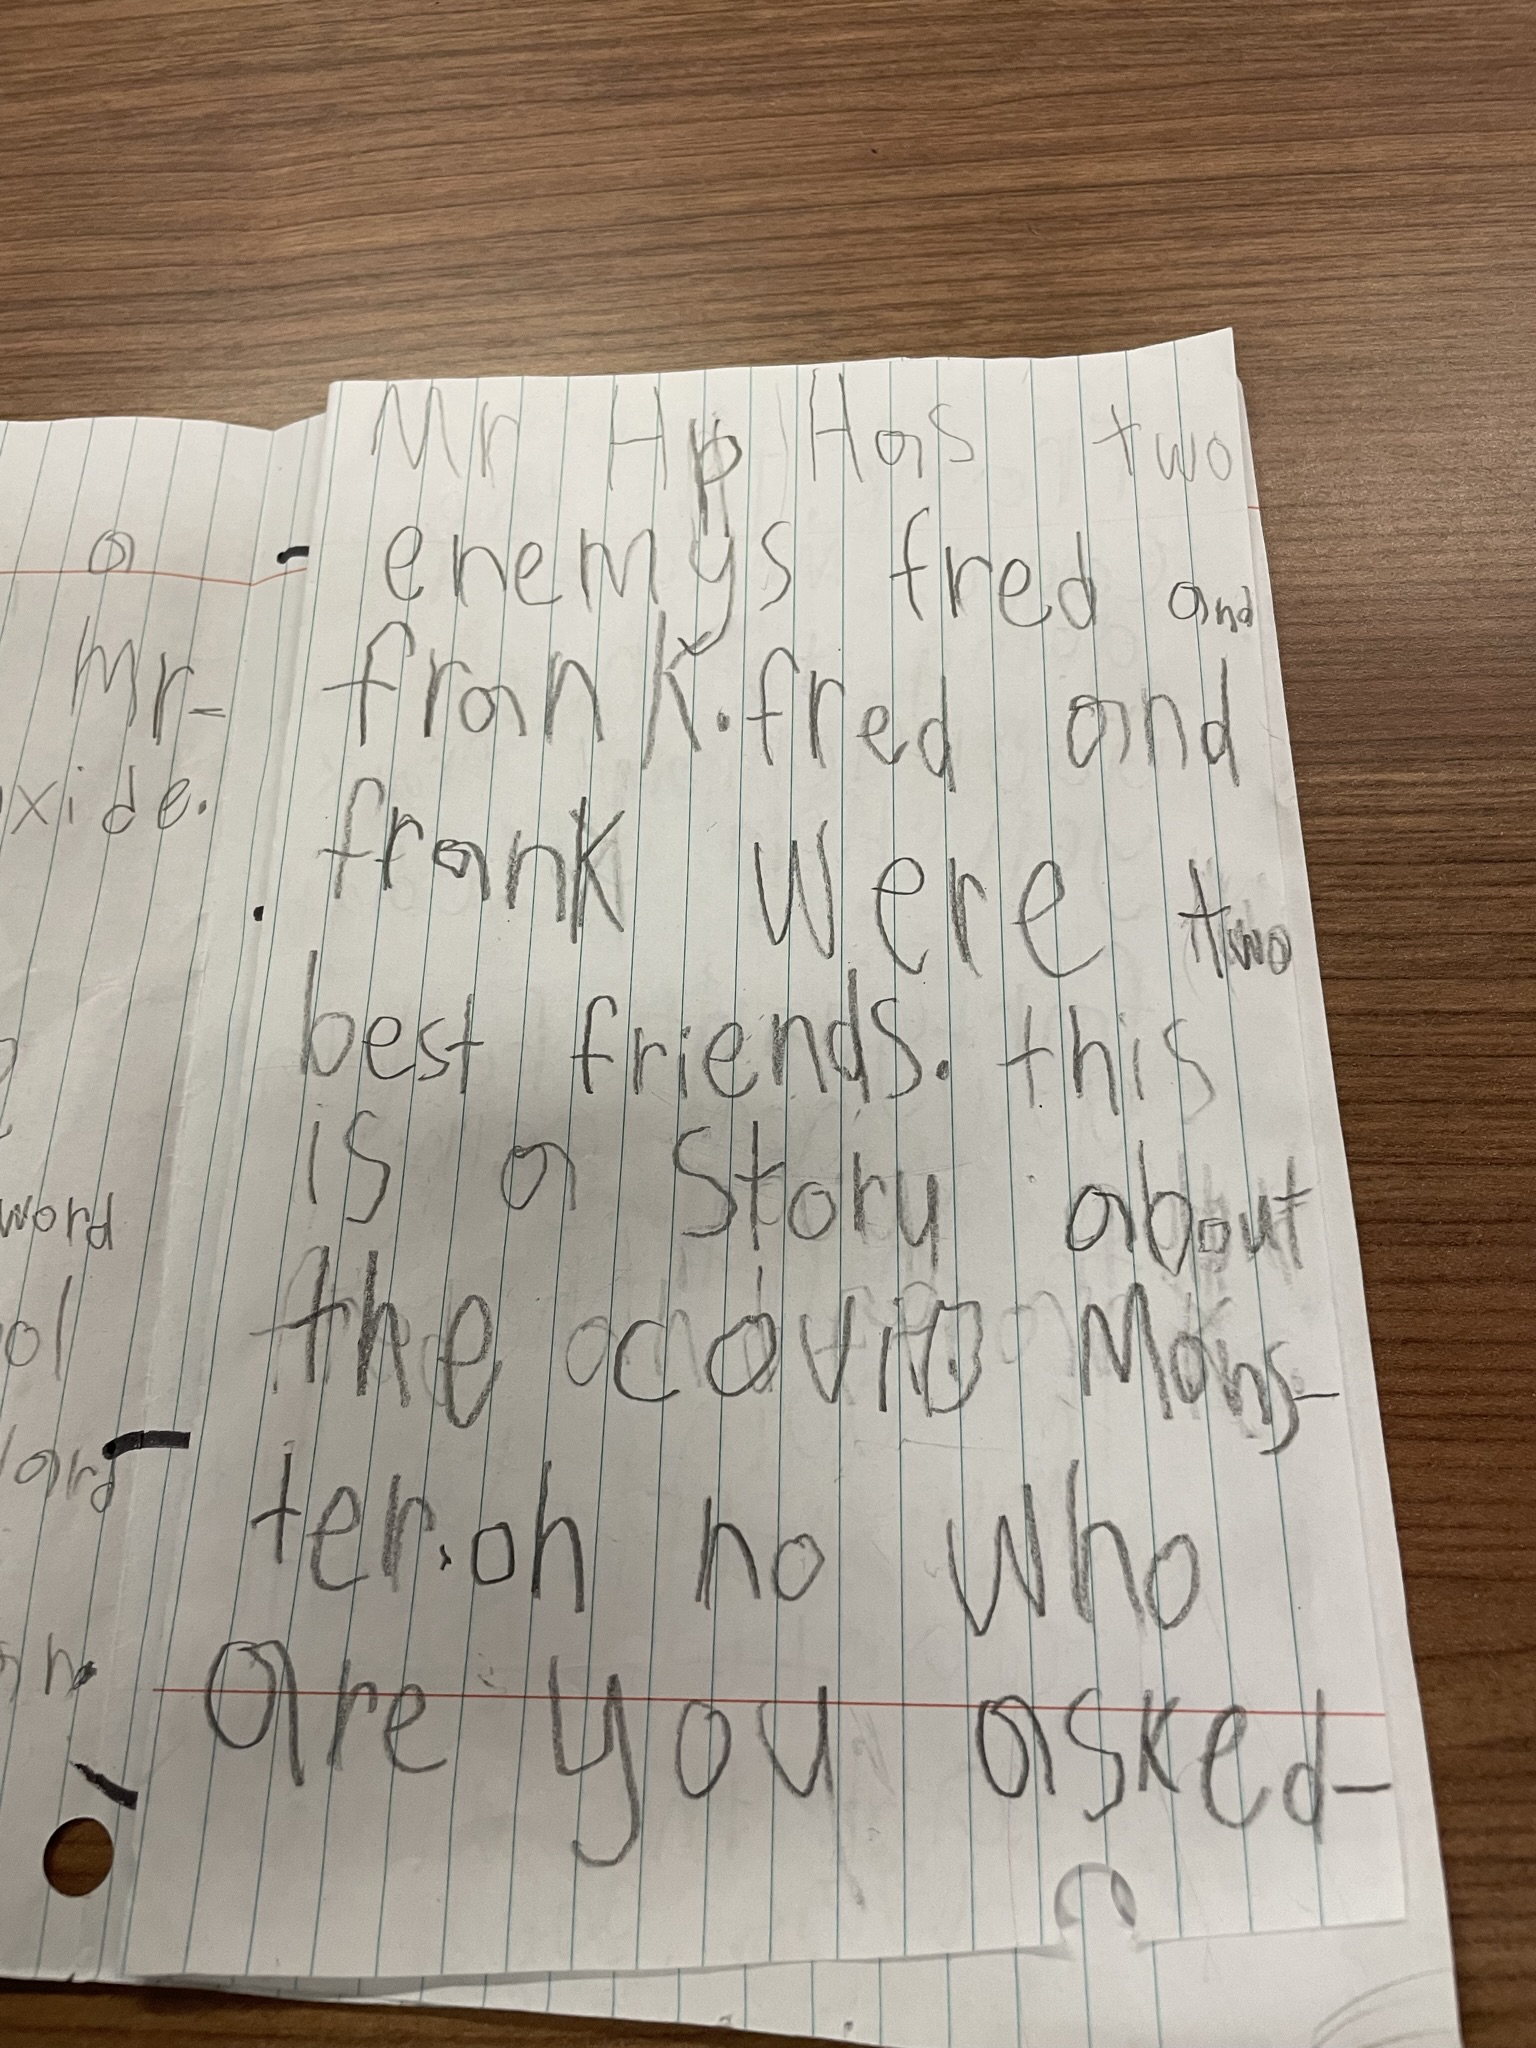 a
Mr-
oxide.
word
ol
ard
an.
Mr Hp Has two
enemys fred and
frank. fred and
frank were two
best friends. this
is a story about
the covid Mons-
ter. oh no who
are you asked-